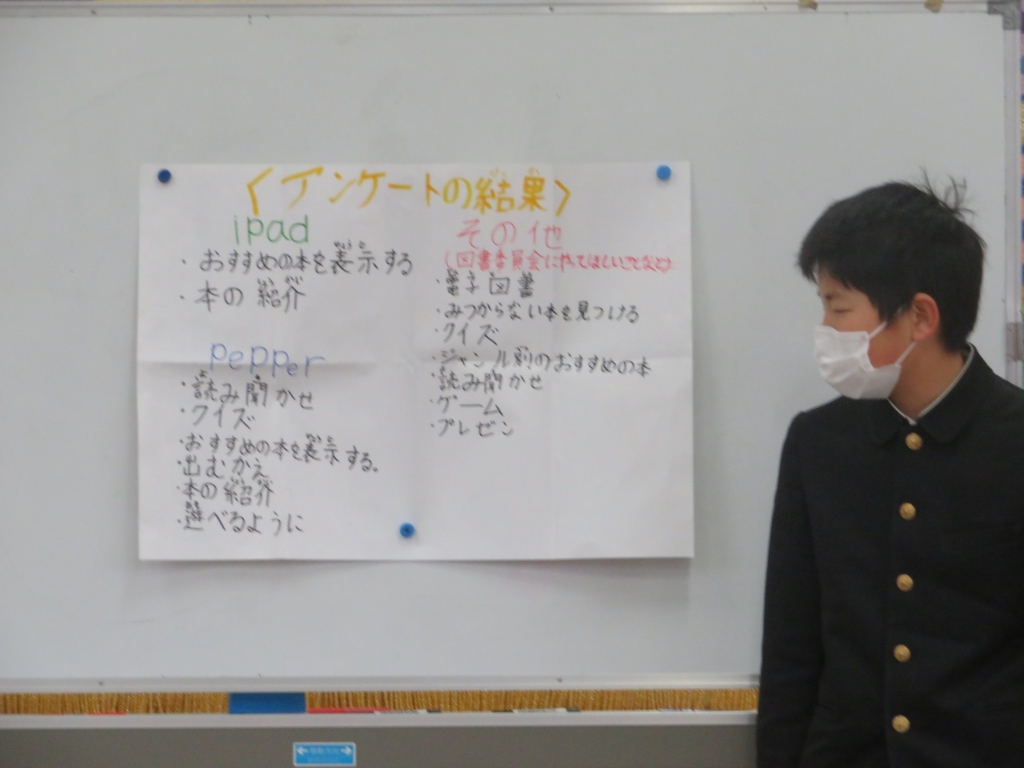 <アンケートの結果>
ipad
・おすすめの本を表示する
・本の紹介
pepper
・読み聞かせ
・クイズ
・おすすめの本を表示する。
・出むかえ
・本の紹介
・選べるように
その他
(図書委員会にやってほしいことなど)
・電子図書
・みつからない本を見つける
・クイズ
・ジャンル別のおすすめの本
・読み聞かせ
・ゲーム
・プレゼン